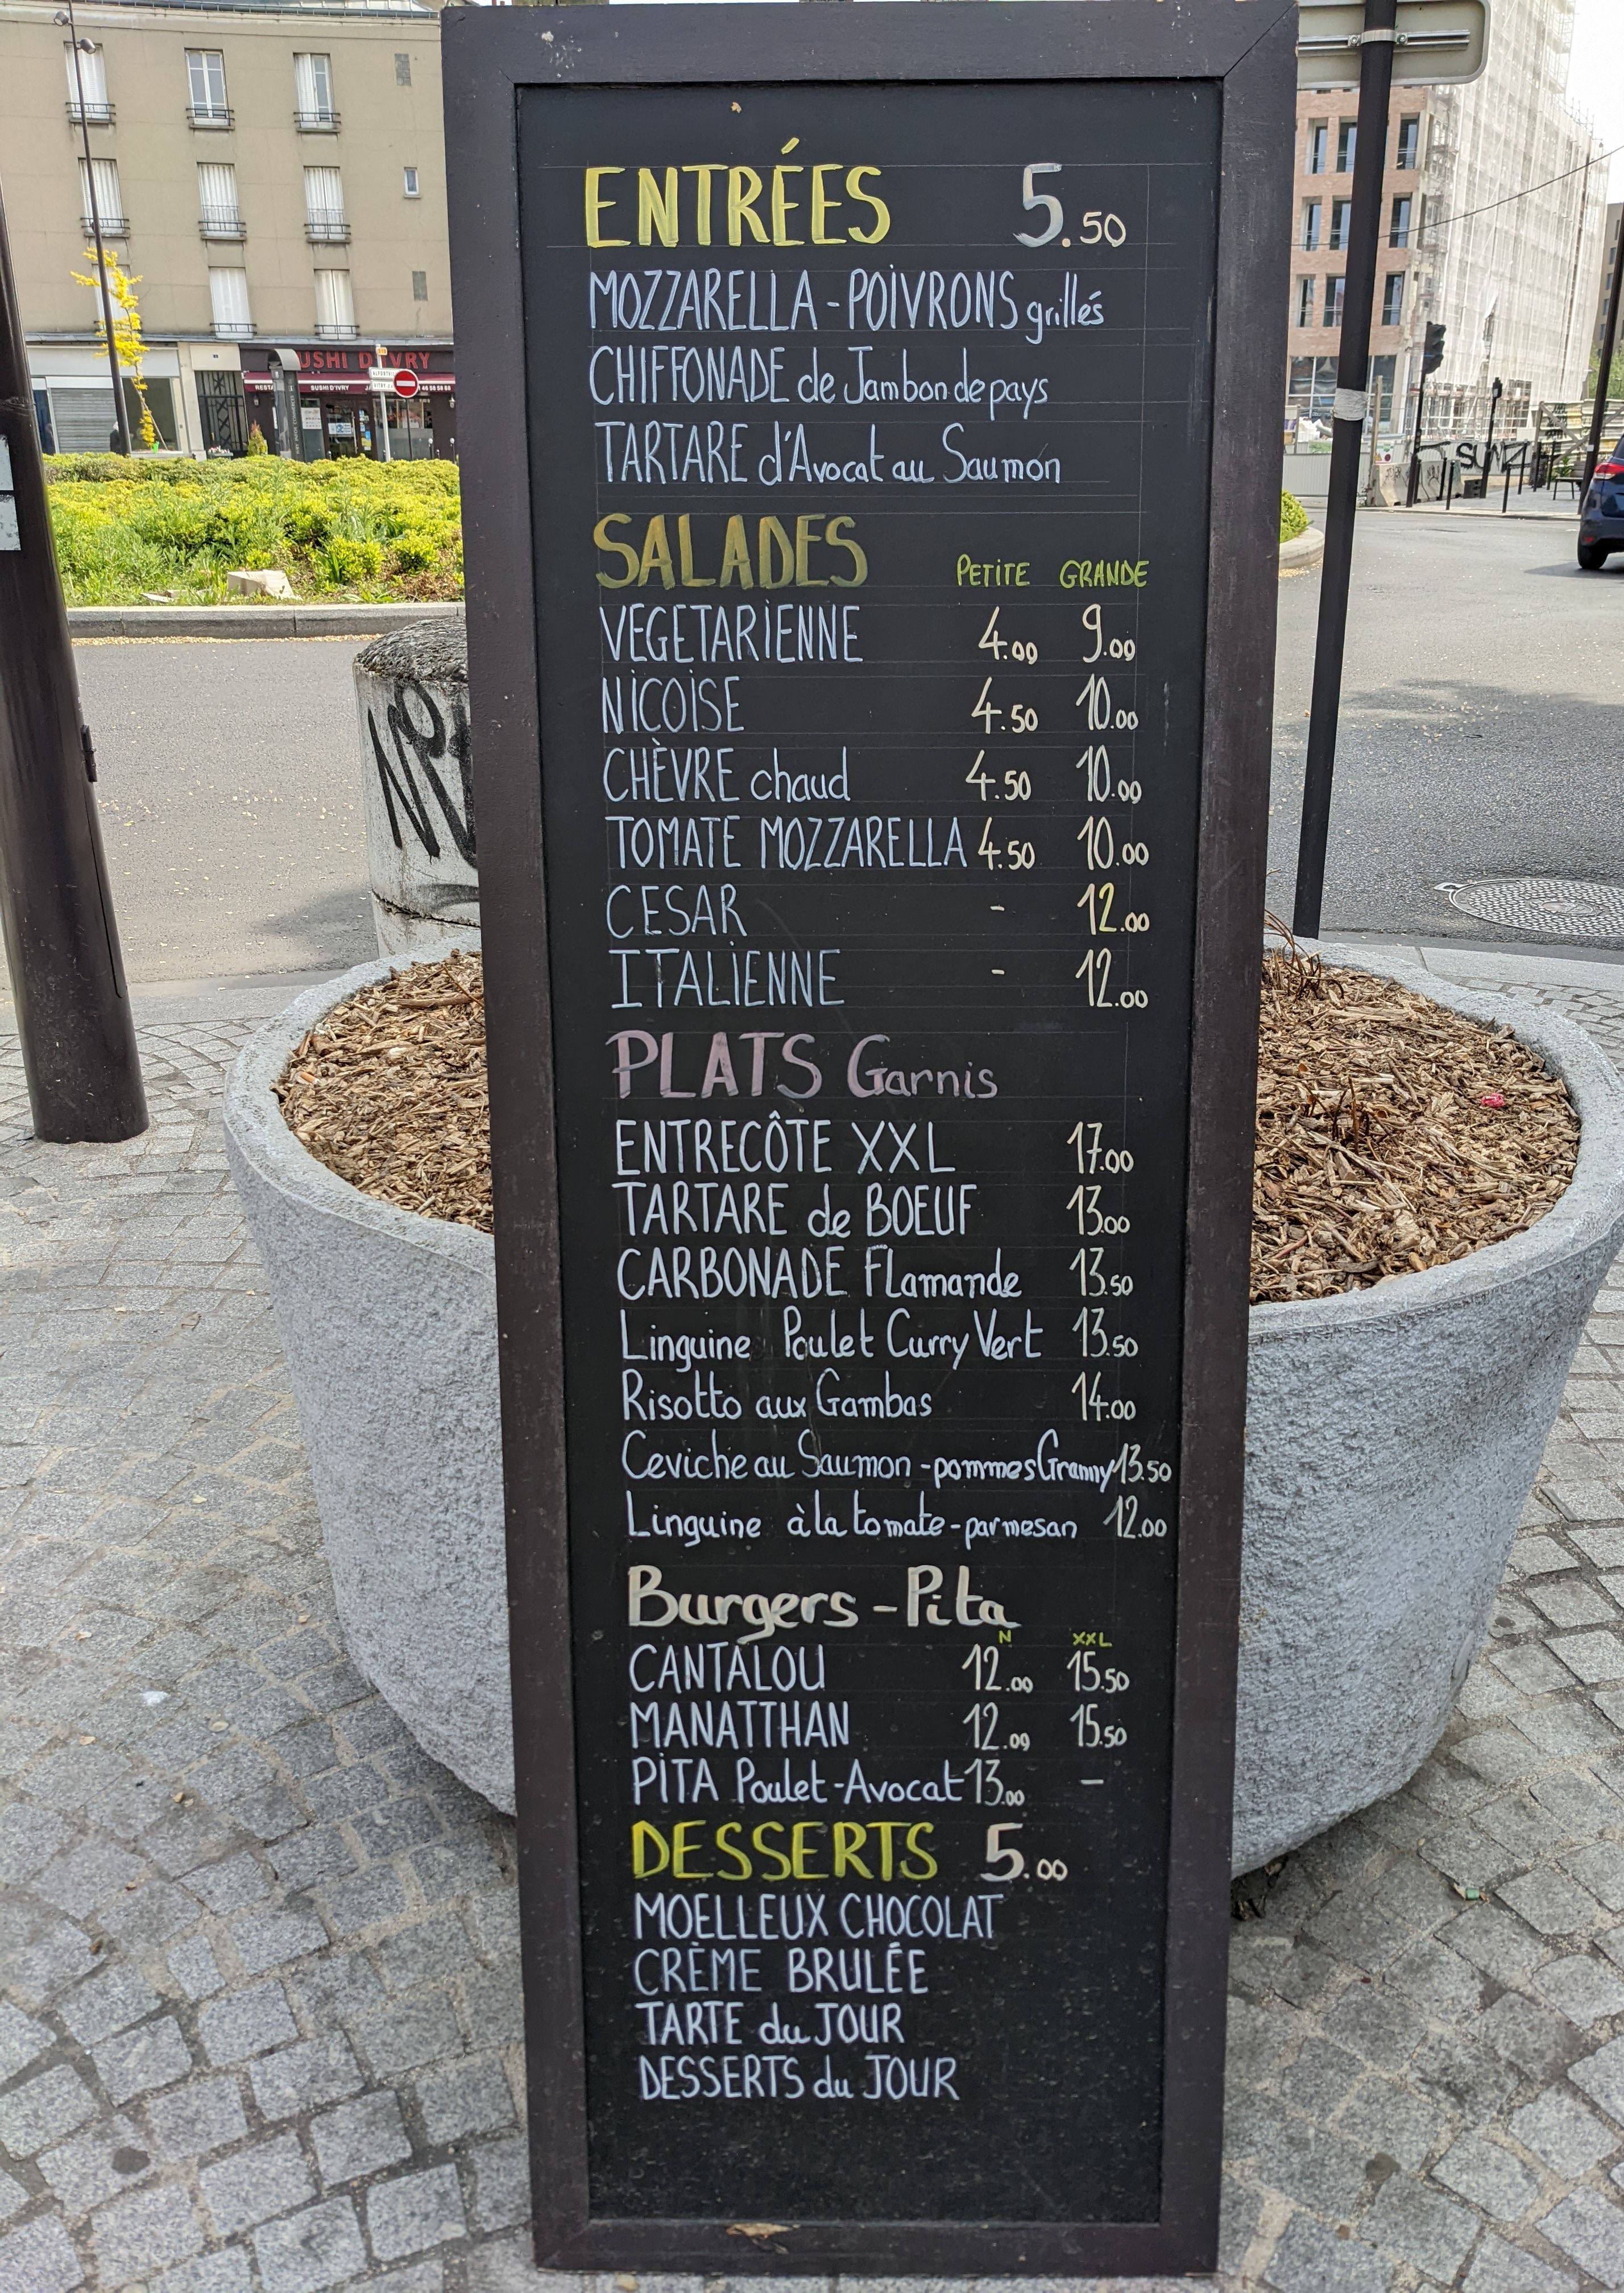 ENTRÉES 5.50
MOZZARELLA - POIVRONS grillés
CHIFFONADE de Jambon de pays
TARTARE d'Avocat au Saumon
SALADES PETITE GRANDE
VEGETARIENNE 4.00 9.00
NICOISE 4.50 10.00
CHÈVRE chaud 4.50 10.00
TOMATE MOZZARELLA 4.50 10.00
CESAR - 12.00
ITALIENNE - 12.00
PLATS Garnis
ENTRECÔTE XXL 17.00
TARTARE de BOEUF 13.00
CARBONADE FLamande 13.50
Linguine Poulet Curry Vert 13.50
Risotto aux Gambas 14.00
Ceviche au Saumon - pommes Granny 13.50
Linguine à la tomate - parmesan 12.00
Burgers - Pita
N XXL
CANTALOU 12.00 15.50
MANATTHAN 12.00 15.50
PITA Poulet - Avocat 13.00 -
DESSERTS 5.00
MOELLEUX CHOCOLAT
CRÈME BRULÉE
TARTE du JOUR
DESSERTS du JOUR
USHI D'IVRY
SUSHI D'IVRY